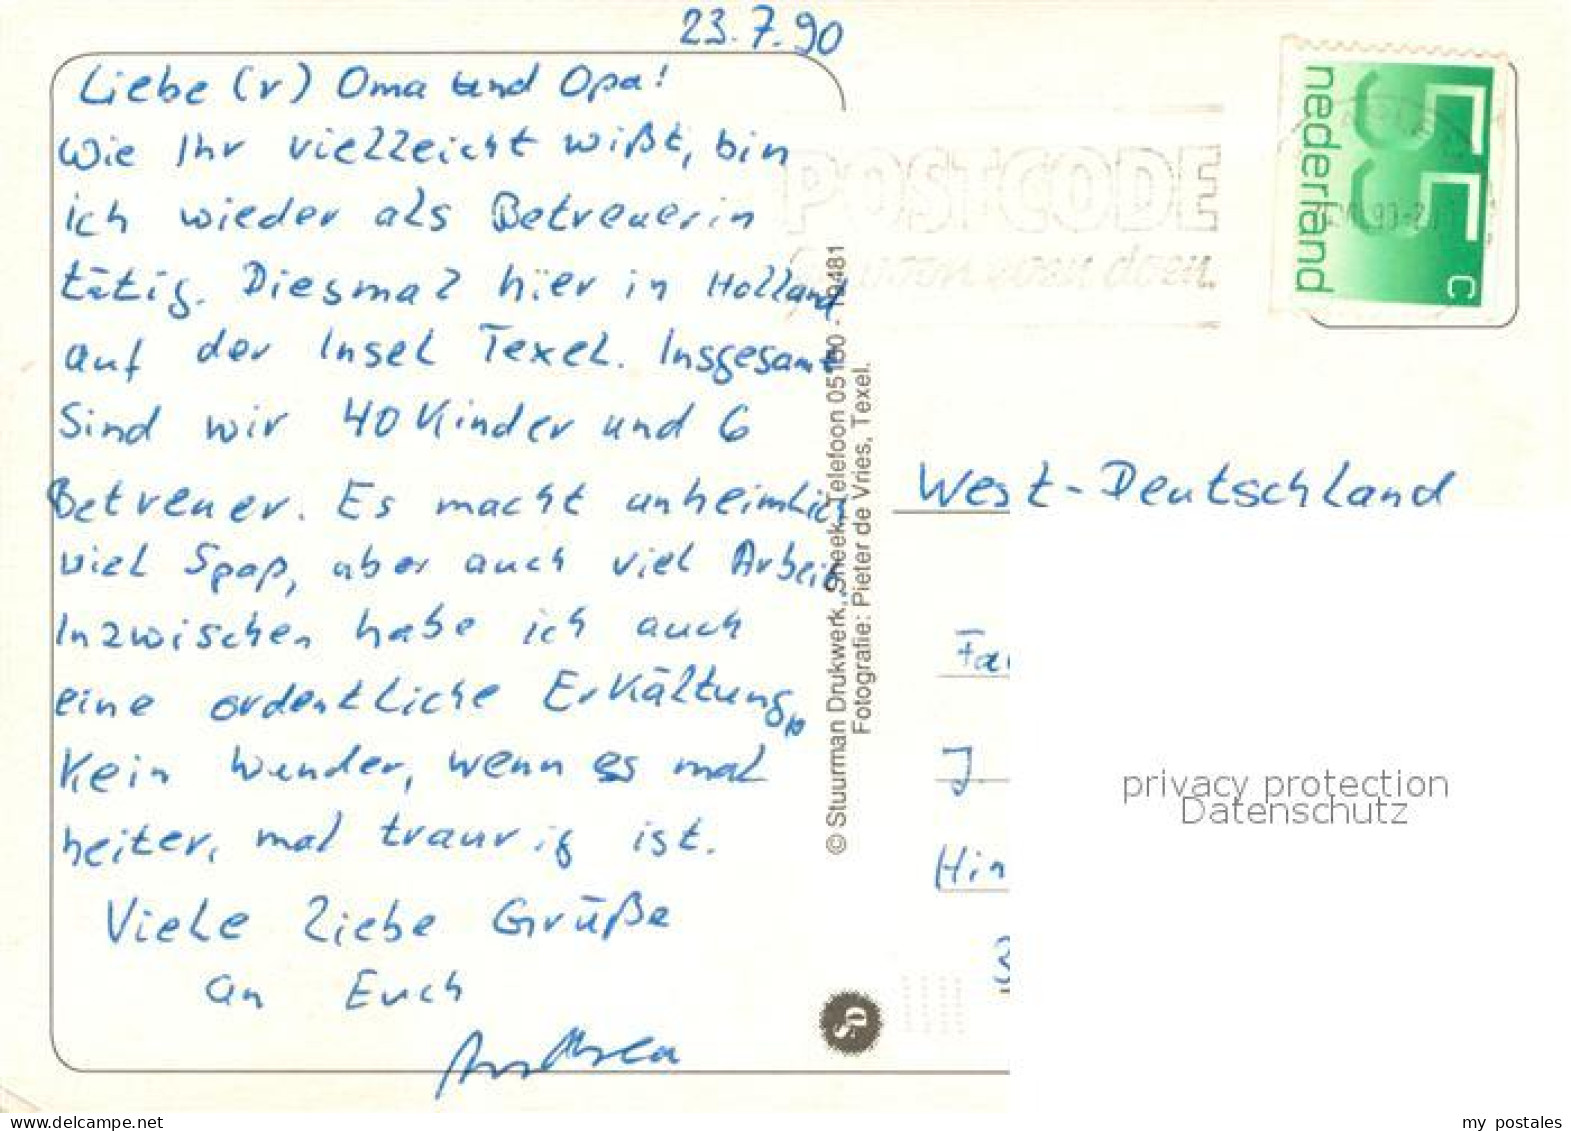 23.7.90
Liebe (r) Oma und Opa!
Wie Ihr vielleicht wißt, bin
ich wieder als Betreuerin
tätig. Diesmal hier in Holland
auf der Insel Texel. Insgesamt
sind wir 40 Kinder und 6
Betreuer. Es macht unheimlich
viel Spaß, aber auch viel Arbeit.
Inzwischen habe ich auch
eine ordentliche Erkältung,
Kein Wunder, wenn es mal
heiter, mal traurig ist.
Viele liebe Grüße
an Euch
Andrea
© Stuurman Drukwerk, Sneek, Telefoon 05150 - 19481
Fotografie: Pieter de Vries, Texel.
SD
POSTCODE
gewoon even doen
nederland
55 c
West-Deutschland
Fa
J.
Hin
privacy protection
Datenschutz
www.delcampe.net
my_postales